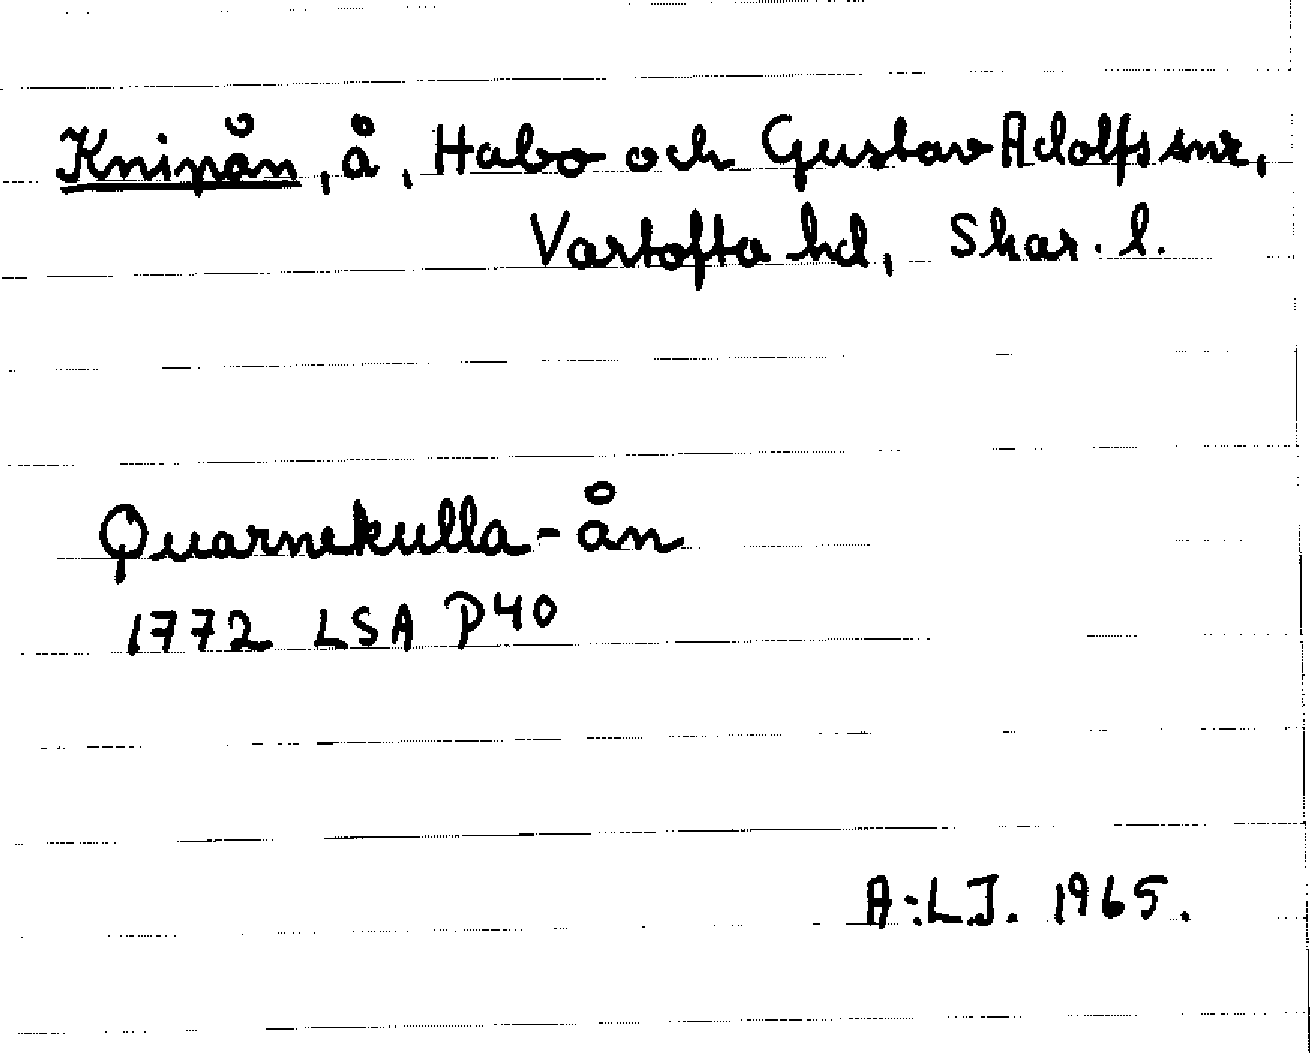 Knipån, å, Habo och Gustav Adolfs snr,
Vartofta hd, Skar. l.
Quarnekulla-ån
1772 LSA P40
A:LJ. 1965.